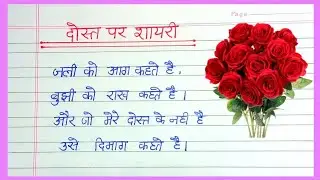 Page
दोस्त पर शायरी
जली को आग कहते है,
बुझी को राख कहते है।
और जो मेरे दोस्त के नही है
उसे दिमाग कहते है।